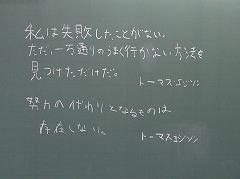 私は失敗したことがない。
ただ、一万通りのうまく行かない方法を
見つけただけだ。
トーマス・エジソン
努力の代わりとなるものは
存在しない。
トーマスエジソン